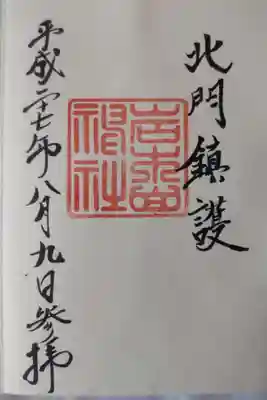 北門鎮護
岩木山神社
平成二十七年八月九日参拝